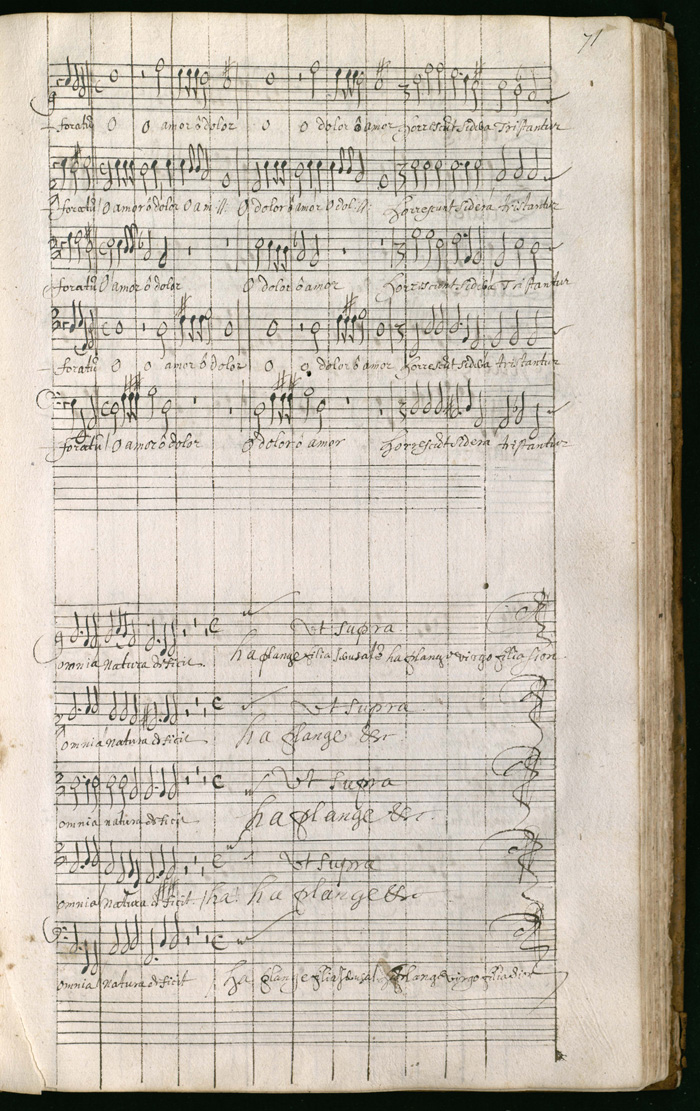 71
foratū O O amor ô dolor O O dolor ô amor horrescūt sidera Tristantur
foratū O amor ô dolor O am :||: O dolor ô amor O dol :||: horrescunt sidera tristantur
foratū O amor ô dolor O dolor ô amor horrescunt sidera Tristantur
foratū O O amor ô dolor O O dolor ô amor horrescūt sidera tristantur
foratū O amor ô dolor O dolor ô amor horrescūt sidera tristantur
Vt supra
omnia natura deficit ha plange filia ha plange virgo filia sion
Vt supra
omnia natura deficit ha plange &c
Vt supra
omnia natura deficit ha plange &c.
Vt supra
omnia natura deficit ha ha plange &c
omnia natura deficit ha plange filia plange virgo filia